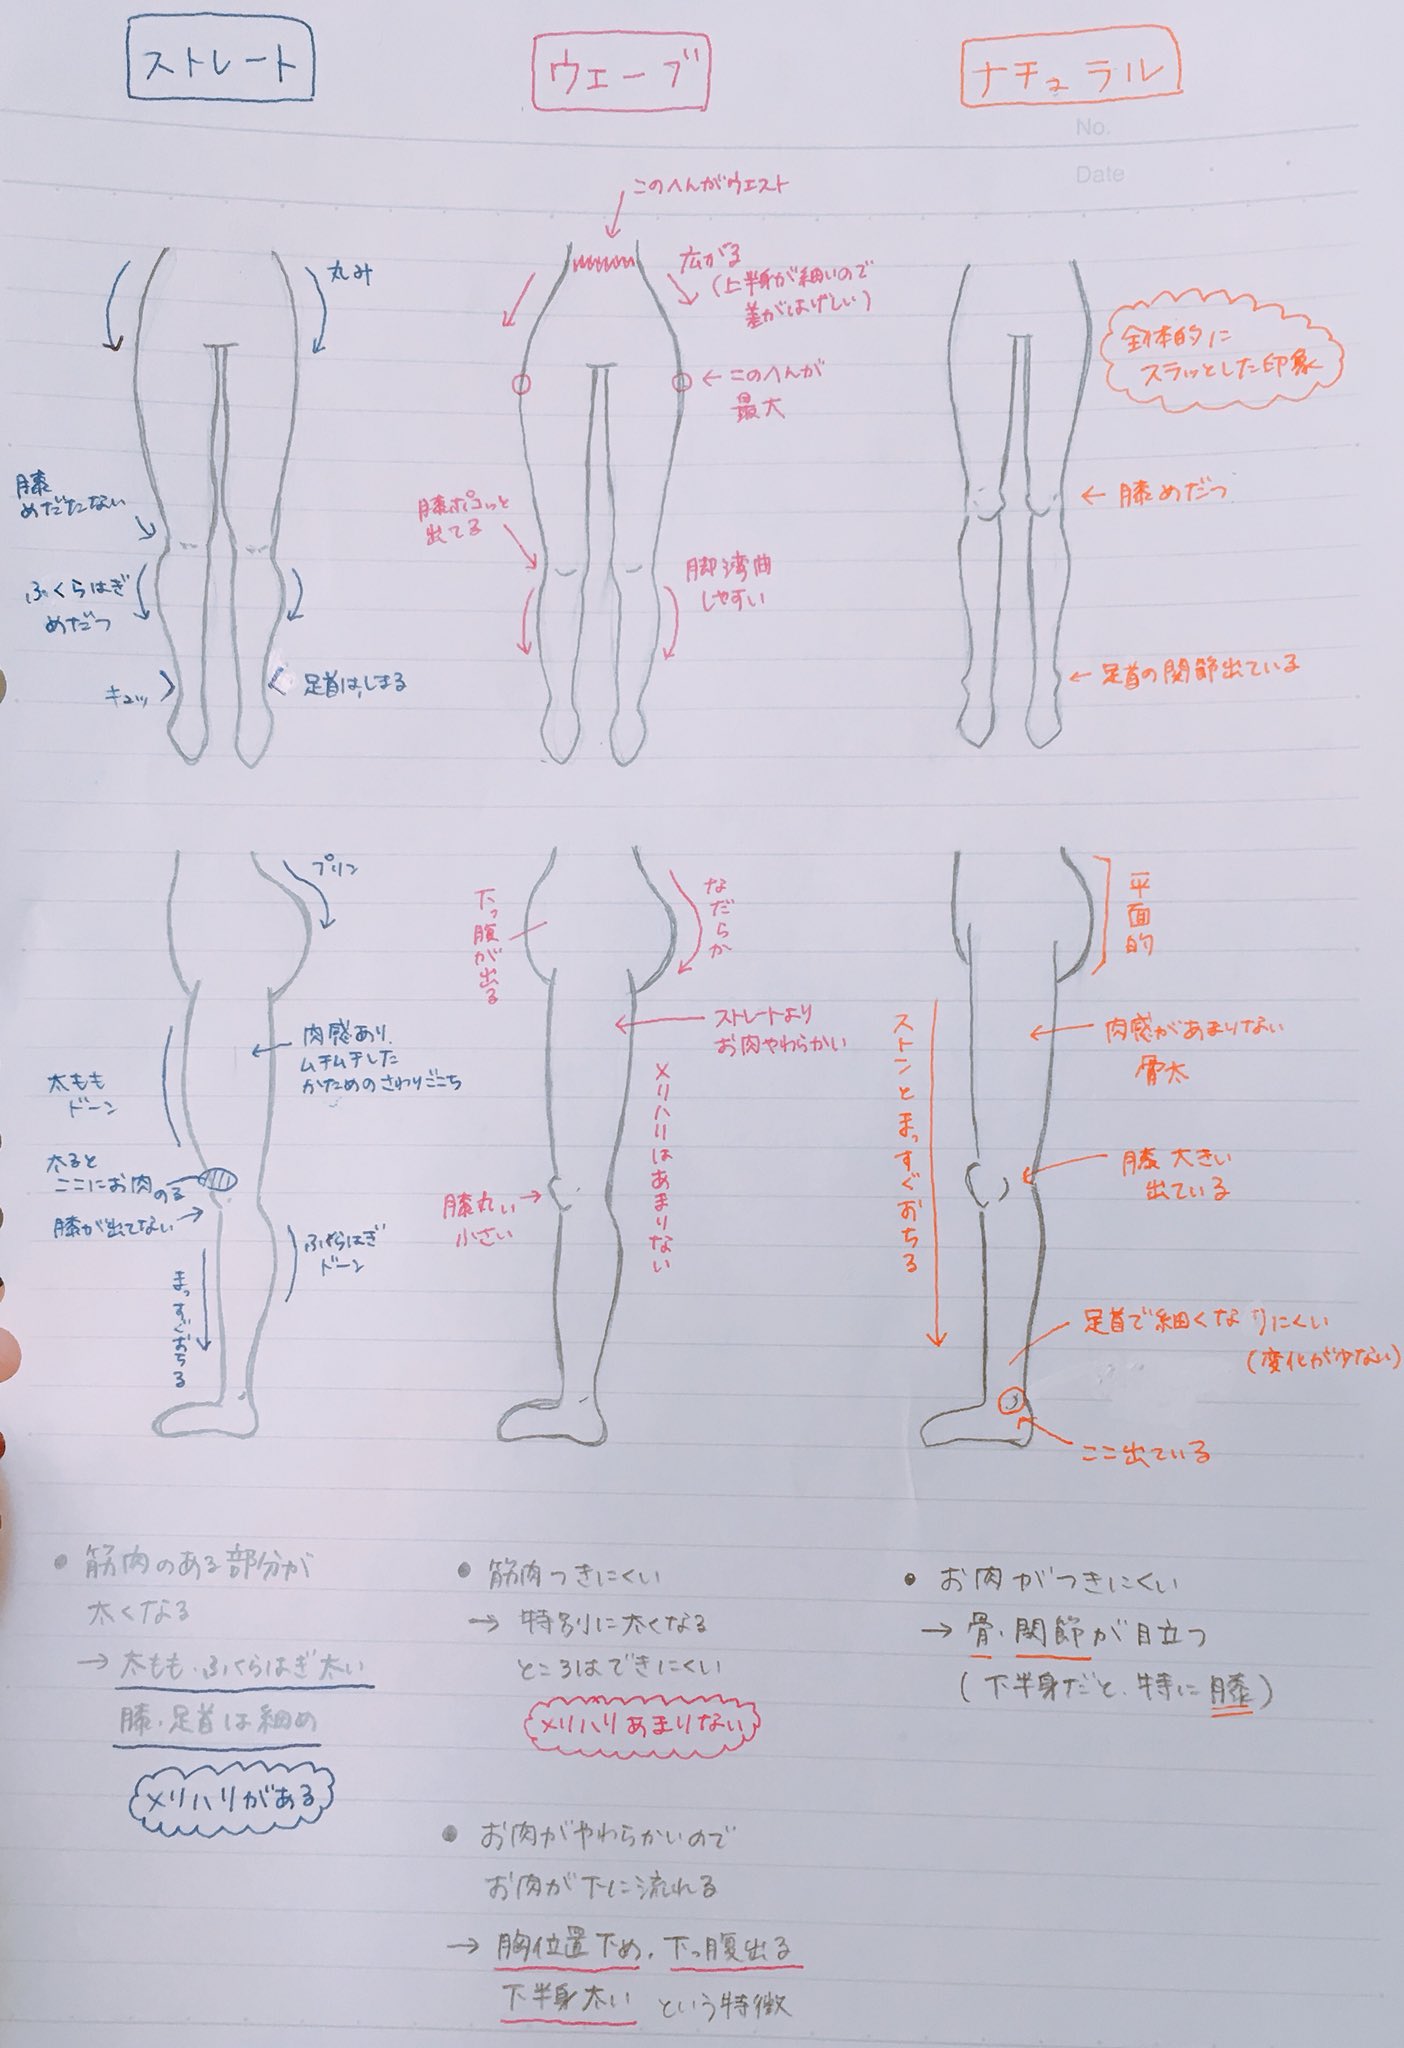 ストレート
ウェーブ
ナチュラル
No.
Date
このへんがウエスト
丸み
広がる
(上半身が細いので
差がはげしい)
全体的に
スラッとした印象
←このへんが
最大
膝
めだたない
膝ポコッと
出てる
←膝めだつ
ふくらはぎ
めだつ
脚湾曲
しやすい
キュッ
足首は、しまる
←足首の関節出ている
プリン
下っ腹が出る
なだらか
平面的
肉感あり、
ムチムチした
かためのさわりごこち
太もも
ドーン
ストレートより
お肉やわらかい
メリハリはあまりない
ストンとまっすぐおちる
肉感があまりない
骨太
太ると
ここにお肉のる
膝が出てない→
膝丸い→
小さい
膝大きい
出ている
ふくらはぎ
ドーン
まっすぐおちる
足首で細くなりにくい
(変化が少ない)
ここ出ている
●筋肉のある部分が
太くなる
→太もも・ふくらはぎ太い
膝・足首は細め
メリハリがある
●筋肉つきにくい
→特別に太くなる
ところはできにくい
メリハリあまりない
●お肉がやわらかいので
お肉が下に流れる
→胸位置下め、下っ腹出る
下半身太い という特徴
●お肉がつきにくい
→骨・関節が目立つ
(下半身だと、特に膝)